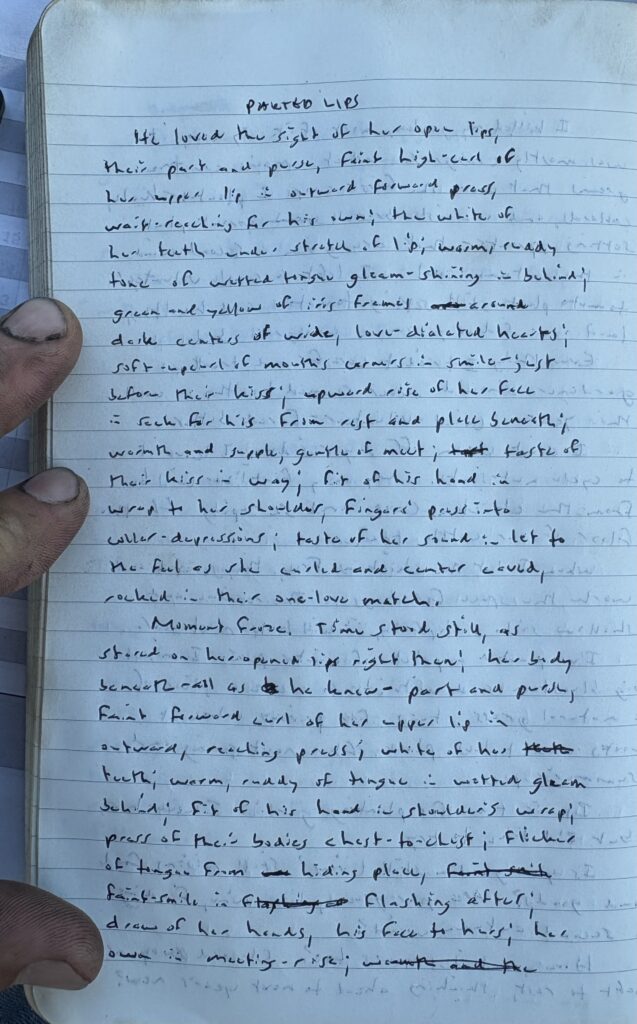 PARTED LIPS
He loved the sight of her open lips,
their part and purse, faint high-curl of
her upper lip in outward forward press,
wait-reaching for his own; the white of
her teeth under stretch of lip; warm, ruddy
tone of wetted tongue gleam-shining in behind;
green and yellow of iris frames around
dark centers of wide, love-dialated hearts;
soft-upcurl of mouth's corners in smile-just
before their kiss; upward rise of her face
in seek for his from rest and place beneath;
warmth and supple, gentle of meet; taste of
their kiss in way; fit of his hand in
wrap to her shoulder, fingers' press into
collar-depressions; taste of her sound in let to
the feel as she curled and center caved,
rocked in their one-love match.
Moment froze. Time stood still, as
stared on her opened lips right then; her body
beneath-all as he knew- part and purse,
faint forward curl of her upper lip in
outward, reaching press; white of her
teeth; warm, ruddy of tongue in wetted gleam
behind; fit of his hand in shoulder's wrap;
press of their bodies chest-to-chest; flicker
of tongue from hiding place,
faint-smile in flashing after;
draw of her hands, his face to hers; her
own in meeting-rise;